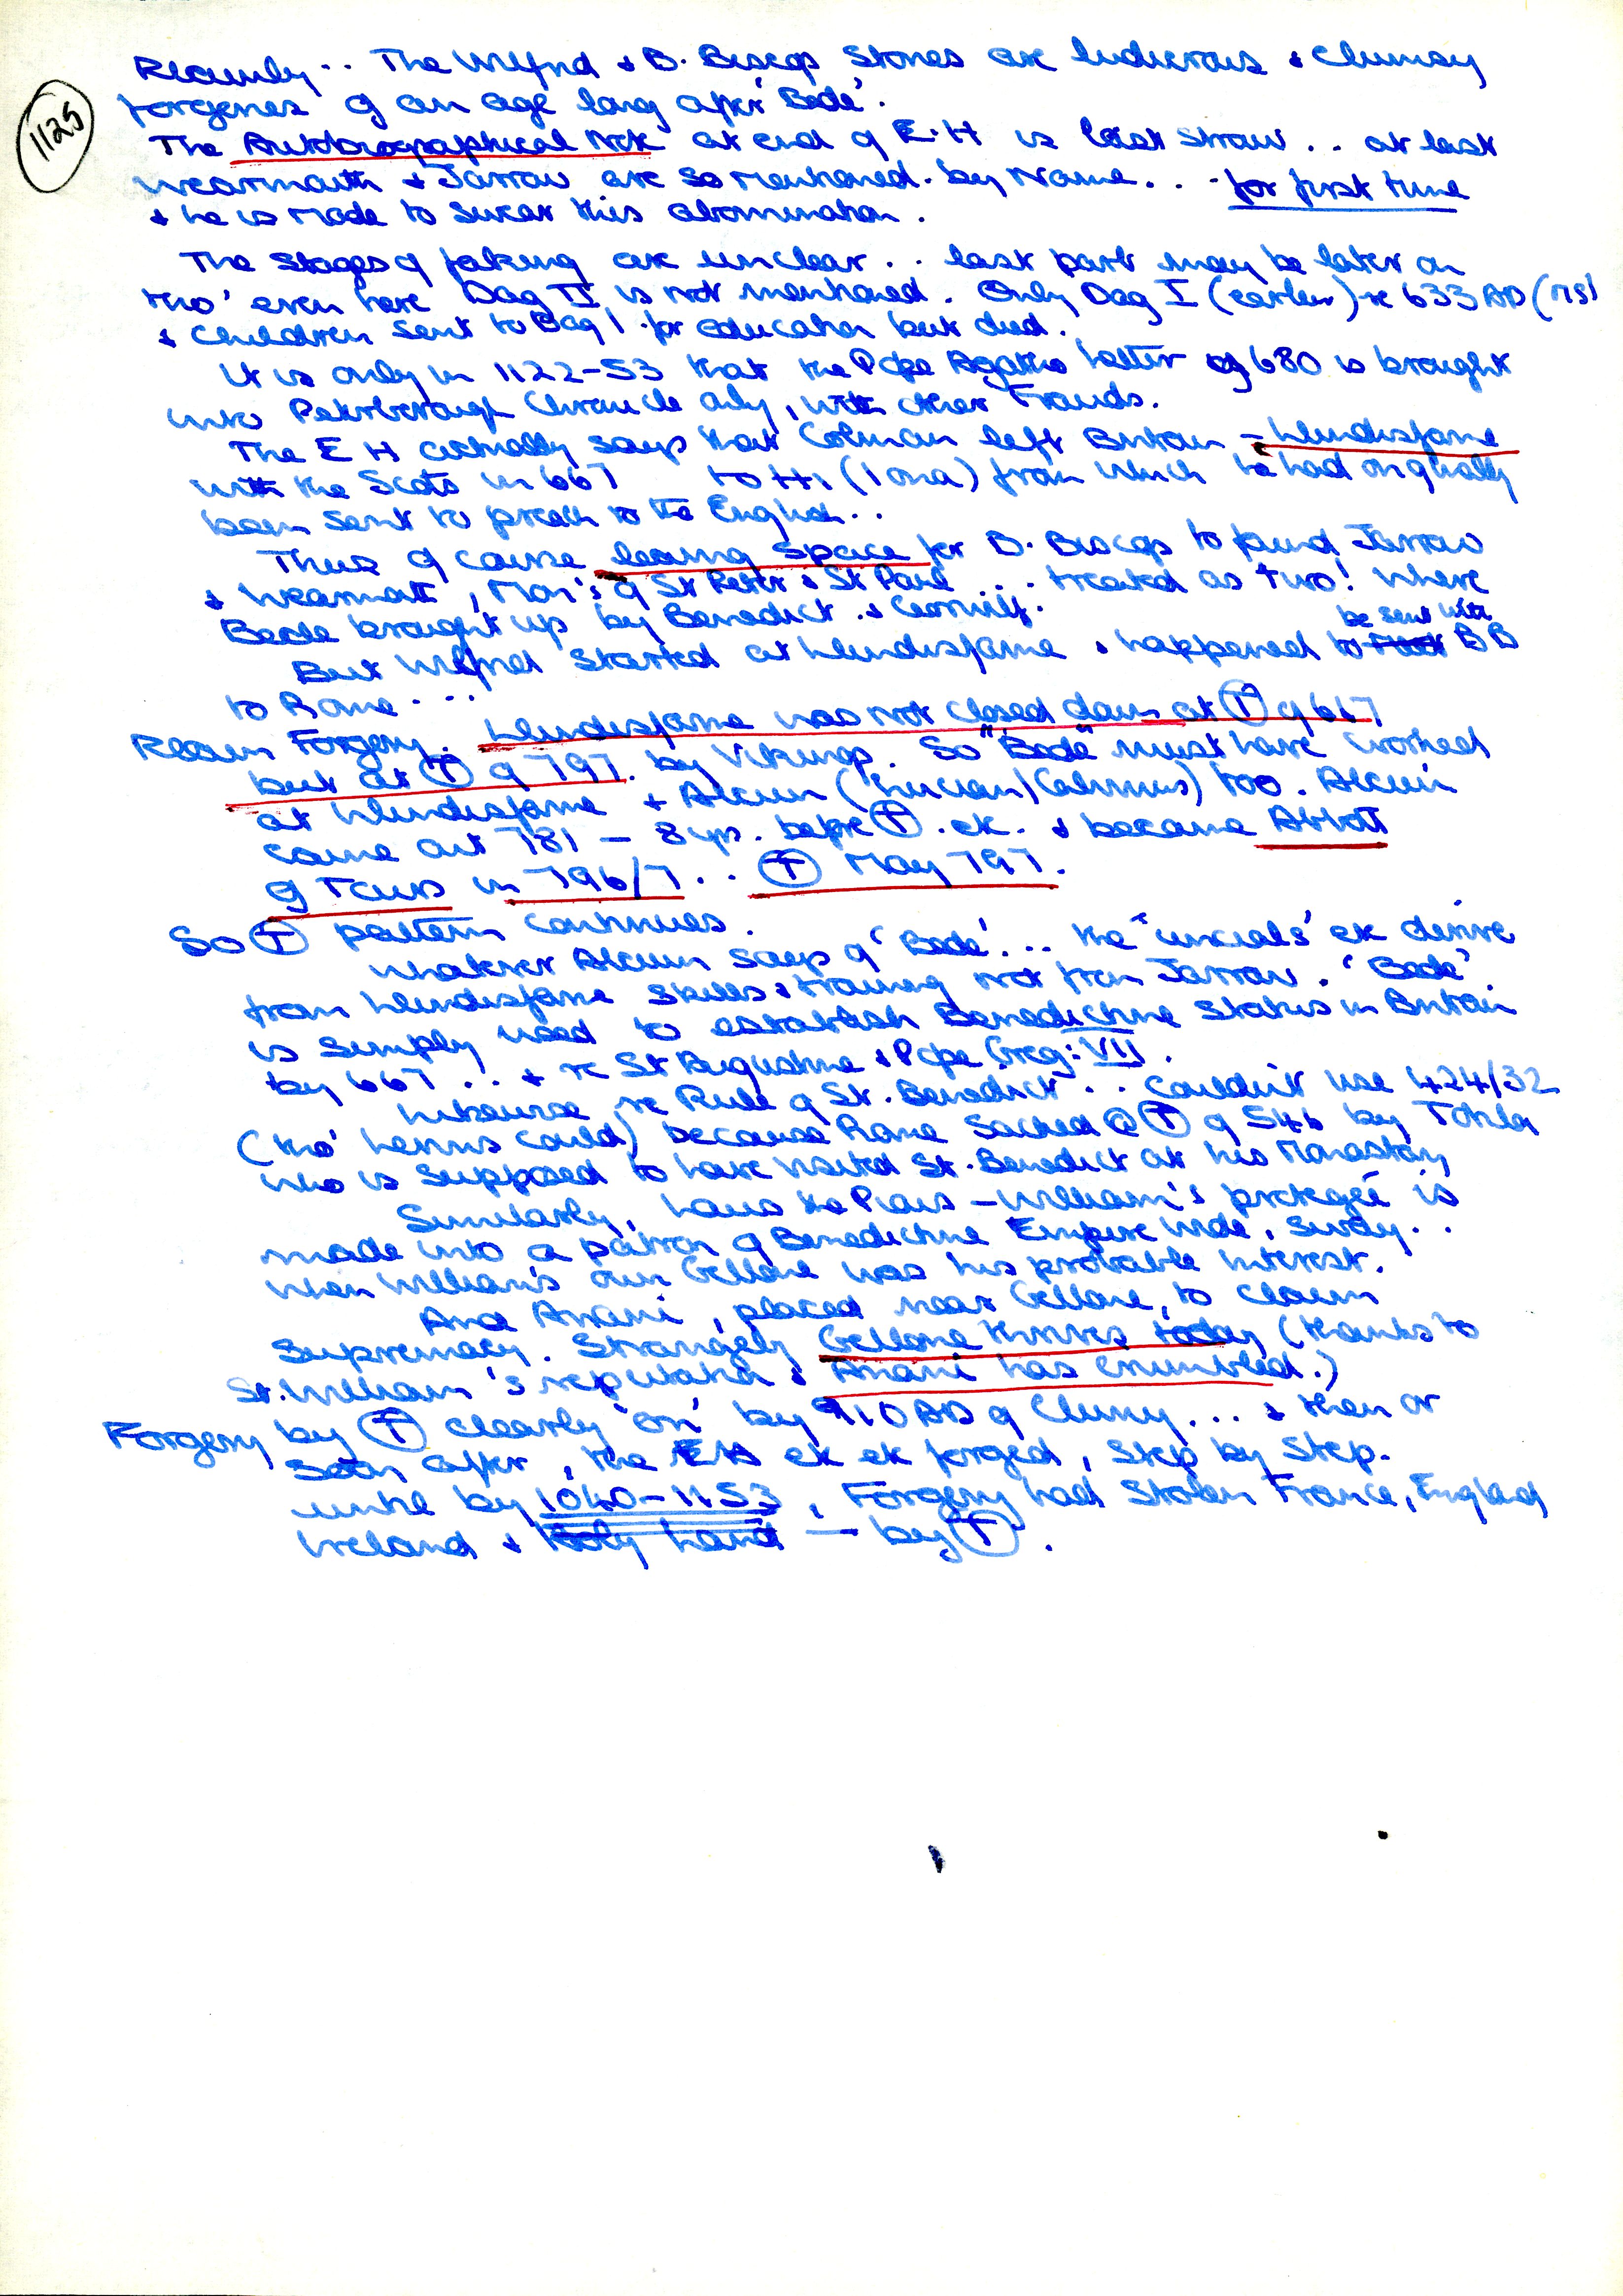 1125
.. The Wilfrid & B. Biscop Stones are ludicrous & Clumsy
forgeries of an age long after 'Bede'.
The Autobiographical Note at end of E.H is last straw .. at last
Wearmouth & Jarrow are so mentioned. by Name... for first time
& he is made to swear this abomination.
The Stages of faking are unclear .. last part may be later on
tho' even here Dag II is not mentioned. Only Dag I (earlier) re 633 AD (MS)
& Children sent to Dag I for education but died.
It is only in 1122-53 that the Pope Agatho letter of 680 is brought
into Peterborough Chronicle only, with other Frauds.
The E H actually says that Colman left Britain - Lindisfarne
with the Scots in 667 to Hi (Iona) from which he had originally
been sent to preach to the English ..
Thus of course leaving space for B. Biscop to found Jarrow
& Wearmouth, Mon's of St Peter & St Paul ... treated as two! where
Bede brought up by Benedict & Ceornilf.
be sent with
But Wilfrid started at Lindisfarne & happened to BB
to Rome ...
Forgery. Lindisfarne was not closed down at (T) of 667
but at (T) of 797. by Vikings. So "Bede" must have worked
at Lindisfarne + Alcuin (Lucian/) too. Alcuin
came out 781 - 8 yrs. before (T). etc. & became Abbott
of Tours in 796/7 .. (T) May 797.
So (T) pattern continues.
Whatever Alcuin says of 'Bede' ... the 'uncials' etc derive
from Lindisfarne skills & training not from Jarrow. 'Bede'
is simply used to establish Benedictine status in Britain
by 667 .. & re St Augustine & Pope Greg: VII.
Likewise re Rule of St. Benedict .. Couldn't use 424/32
(tho' Lerins could) because Rome Sacked @ (T) of 546 by Totila
who is supposed to have visited St. Benedict at his Monastery
Similarly, Louis the Pious - William's protegé is
made into a patron of Benedictine Empire wide, surely ..
when William's own Gellone was his probable interest.
And Aniani, placed near Gellone, to claim
Supremacy. Strangely Gellone thrives today (thanks to
St. William's reputation & Aniani has crumbled.)
Forgery by (T) clearly 'on' by 910 AD of Cluny ... & then or
soon after, the EH etc etc forged, step by step.
until by 1040-1153, Forgery had stolen France, England
Ireland & Holy Land - by (T).